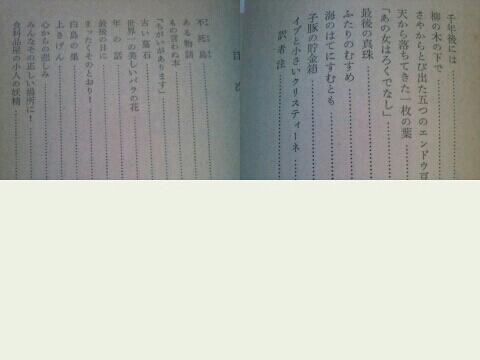 目次
不死鳥
ある物語
もの言わぬ本
「ちがいがあります」
古い墓石
世界一の美しいバラの花
年の話
最後の日に
まったくそのとおり！
白鳥の巣
上きげん
心からの悲しみ
みんなその正しい場所に！
食料品屋の小人の妖精
千年後には
柳の木の下で
さやからとび出た五つのエンドウ豆
天から落ちてきた一枚の葉
「あの女はろくでなし」
最後の真珠
ふたりのむすめ
海のはてにすむとも
子豚の貯金箱
イブと小さいクリスティーネ
訳者注